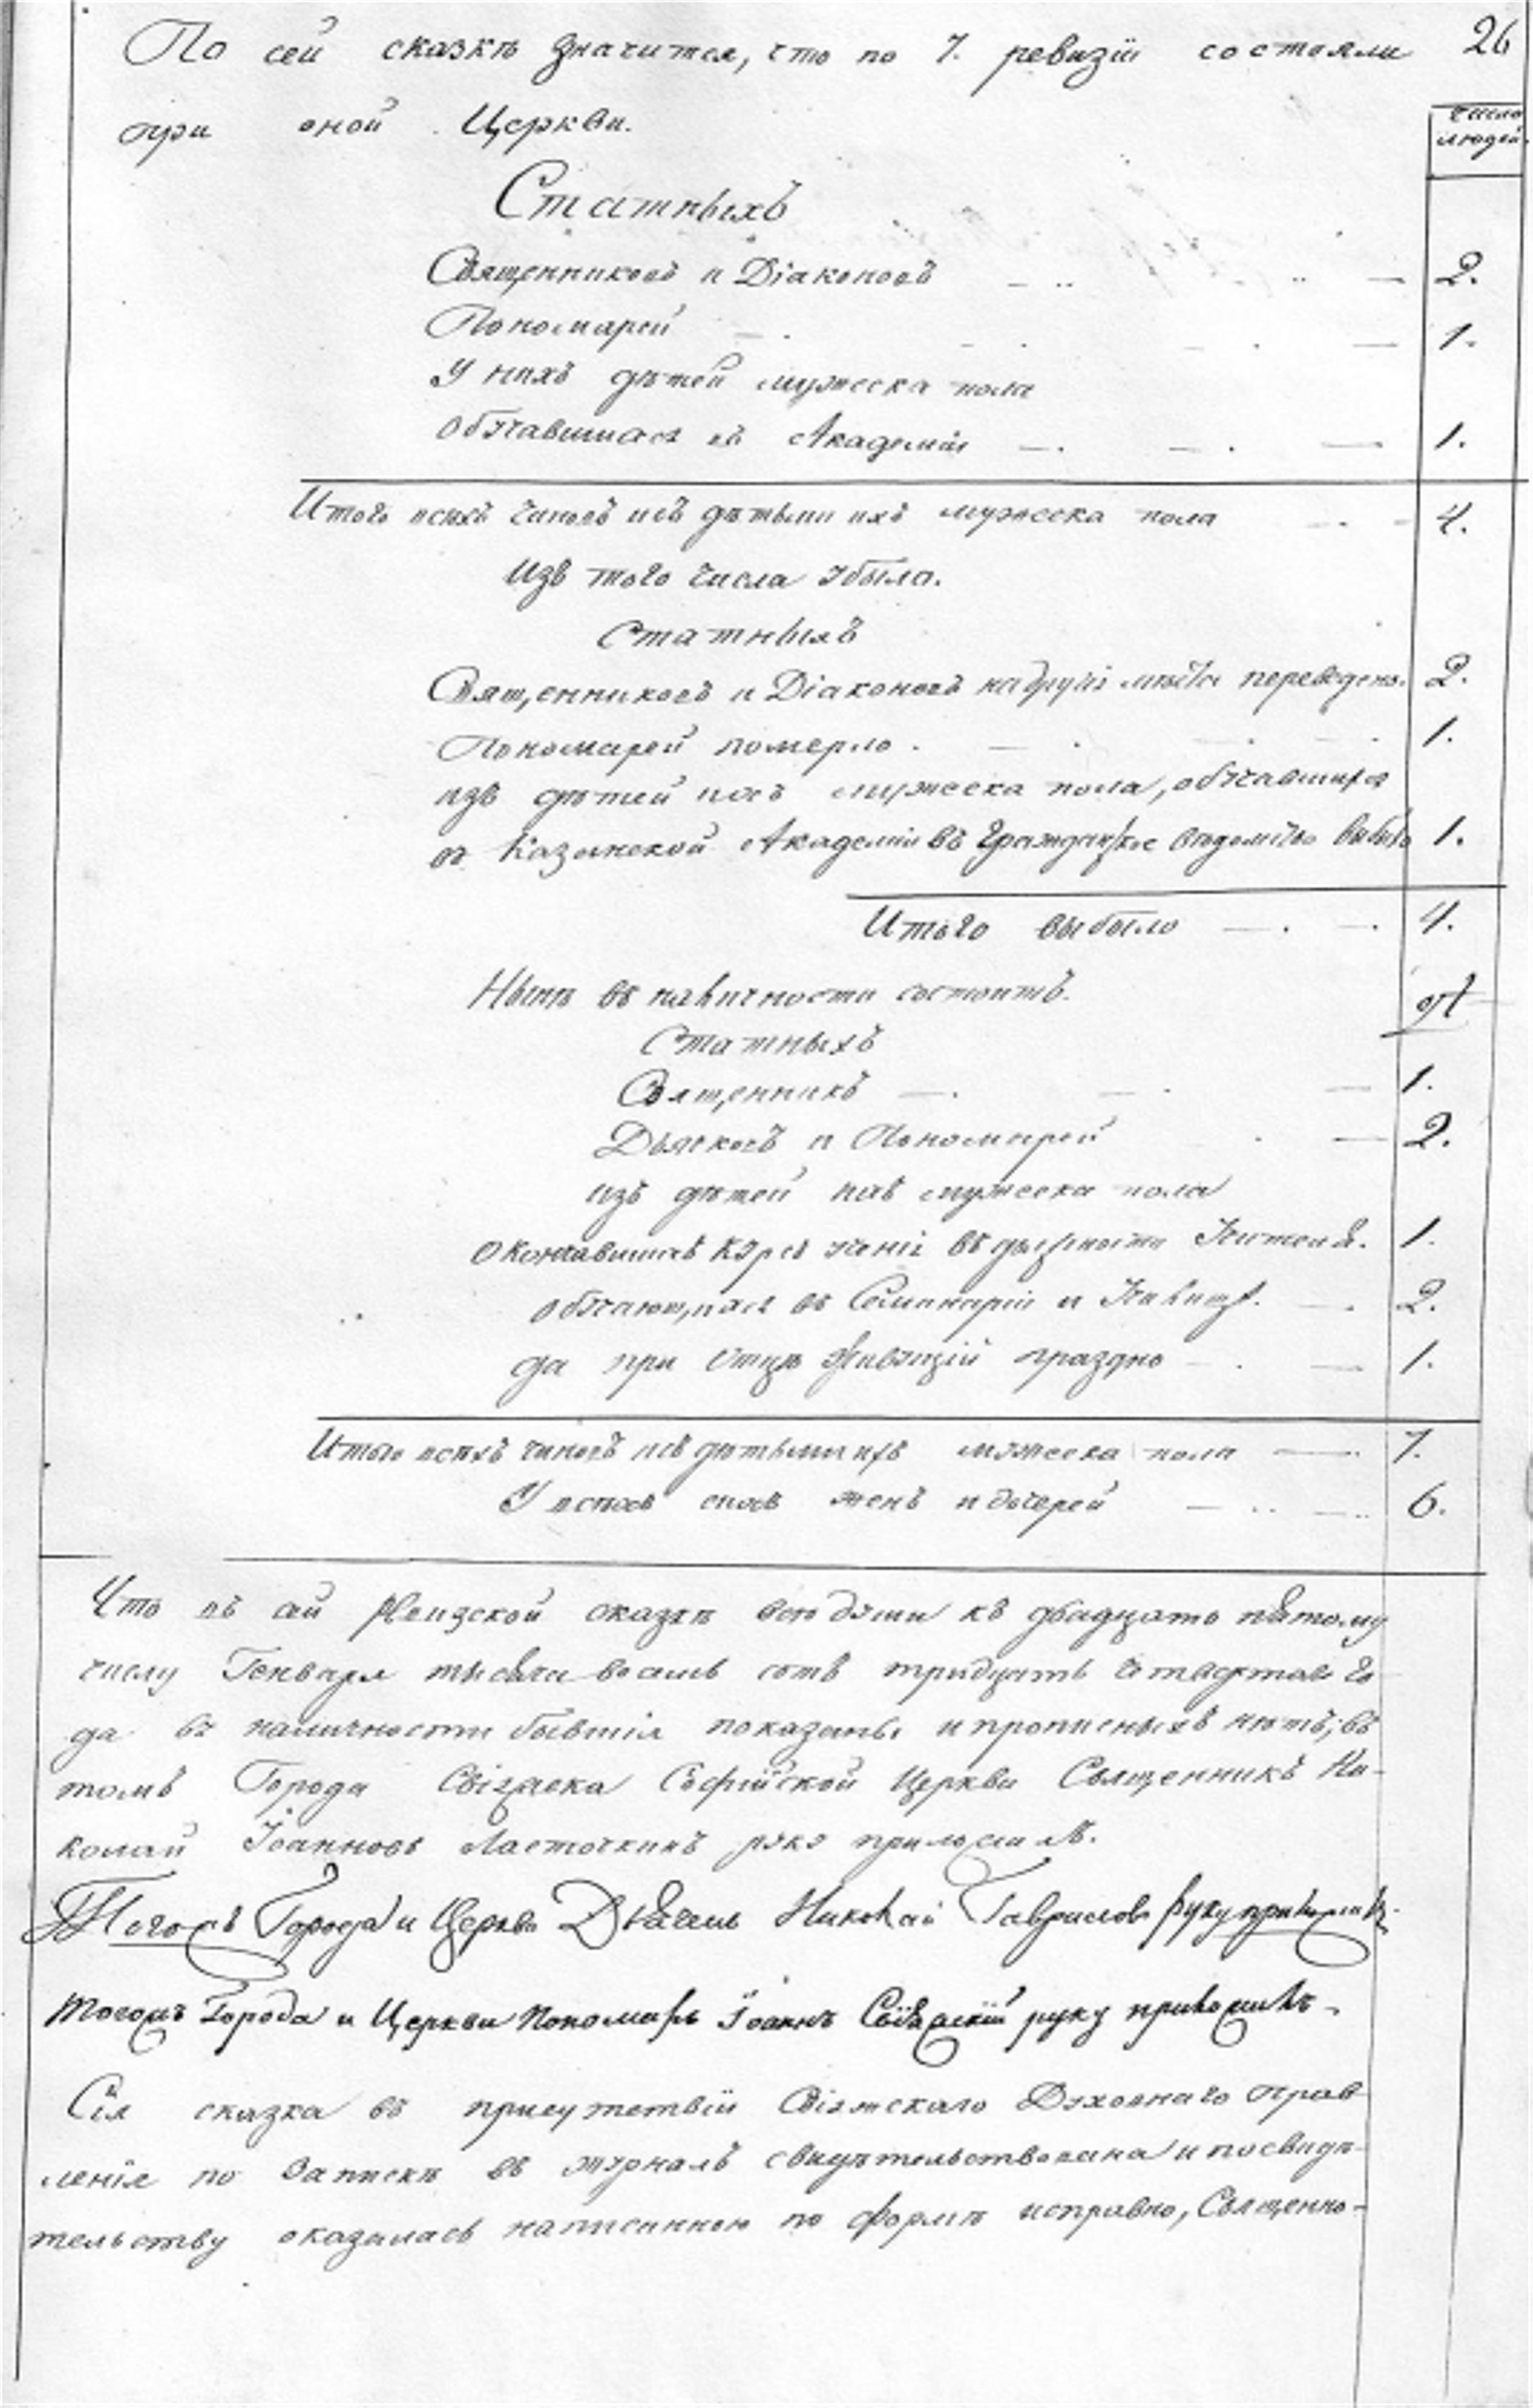 26
По сей сказкѣ значится, что по 7. ревизіи состояли
при оной Церкви.
число людей.
Статныхъ
Священниковъ и Діаконовъ 2.
Пономарей 1.
У нихъ дѣтей мужеска пола
обучавшихся въ Академіи 1.
Итого всѣхъ чиновъ и съ дѣтьми ихъ мужеска пола 4.
Изъ того числа убыло.
Статныхъ
Священниковъ и Діаконовъ на другіе мѣста переведено. 2.
Пономарей померло. 1.
изъ дѣтей ихъ мужеска пола, обучавшихся
въ Казанской Академіи въ Гражданское вѣдомство выбыло 1.
Итого выбыло 4.
Нынѣ въ наличности состоитъ.
Статныхъ
Священникъ 1.
Дьячковъ и Пономарей 2.
изъ дѣтей ихъ мужеска пола
окончавшихъ курсъ ученія въ должности Учителя. 1.
обучающихся въ Семинаріи и Училищѣ. 2.
да при отцѣ живущій праздно 1.
Итого всѣхъ чиновъ и съ дѣтьми ихъ мужеска пола 7.
У всѣхъ сихъ женъ и дочерей 6.
Что въ сей Ревизской сказкѣ всѣ души къ двадцать пятому
числу Генваря тысяча восемь сотъ тридцать четвертаго го-
да въ наличности бывшія показаны и прописныхъ нѣтъ; въ
томъ Города Свіяжска Софійской Церкви Священникъ Ни-
колай Іоанновъ Ласточкинъ руку приложилъ.
Тогожъ Города и Церкви Дьячекъ Николай Гавриловъ руку приложилъ.
Тогожъ Города и Церкви Пономарь Іоаннъ Свіяжскій руку приложилъ.
Сія сказка въ присутствіи Свіяжскаго Духовнаго Прав
ленія по Запискѣ въ журналъ свидѣтельствована и по свидѣ-
тельству оказалась написанною по формѣ исправно, Священно-